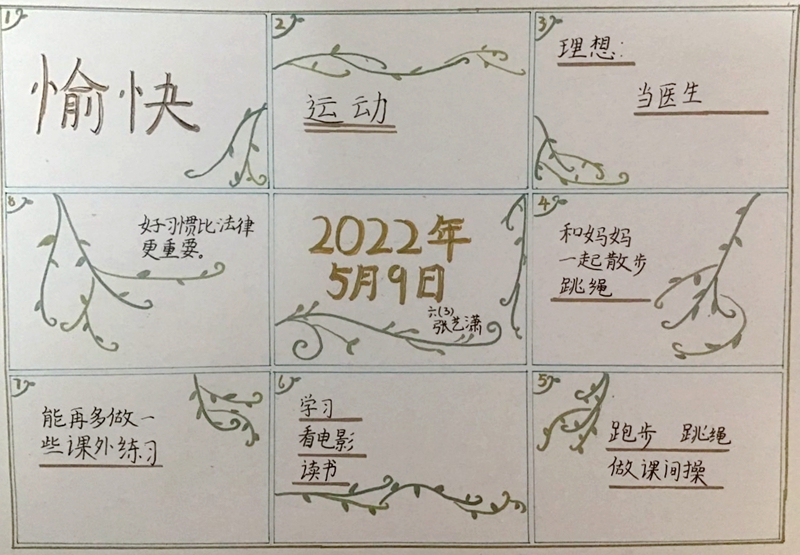 1
愉快
2
运动
3
理想:
当医生
8
好习惯比法律
更重要。
2022年
5月9日
六(3)
张艺潇
4
和妈妈
一起散步
跳绳
7
能再多做一
些课外练习
6
学习
看电影
读书
5
跑步 跳绳
做课间操